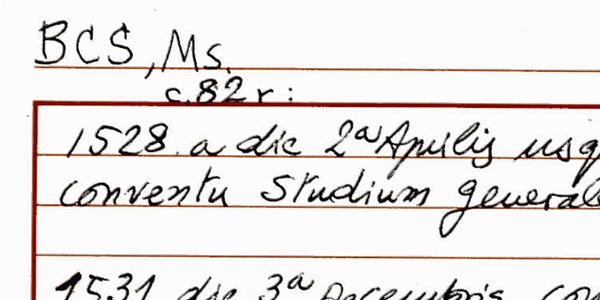 BCS, Ms.
c.82r:
1528. a die 2a Aprilis usq
conventu Studium general
1531 die 3a Decembris con